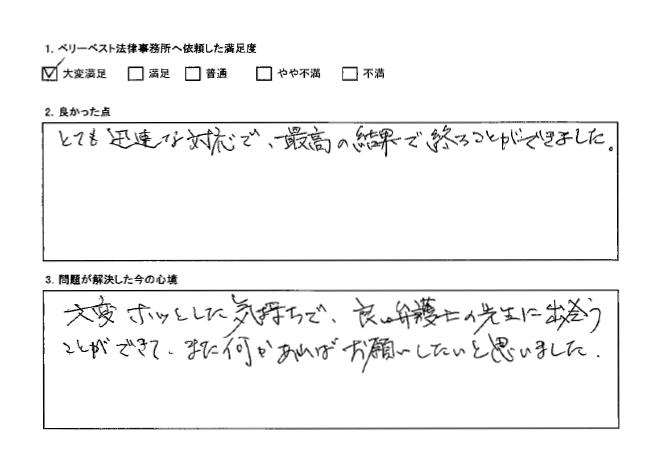 1. ベリーベスト法律事務所へ依頼した満足度
☑ 大変満足 □ 満足 □ 普通 □ やや不満 □ 不満
2. 良かった点
とても迅速な対応で、最高の結果で終ることができました。
3. 問題が解決した今の心境
大変ホッとした気持ちで、良い弁護士の先生に出会う
ことができて、また何かあればお願いしたいと思いました.